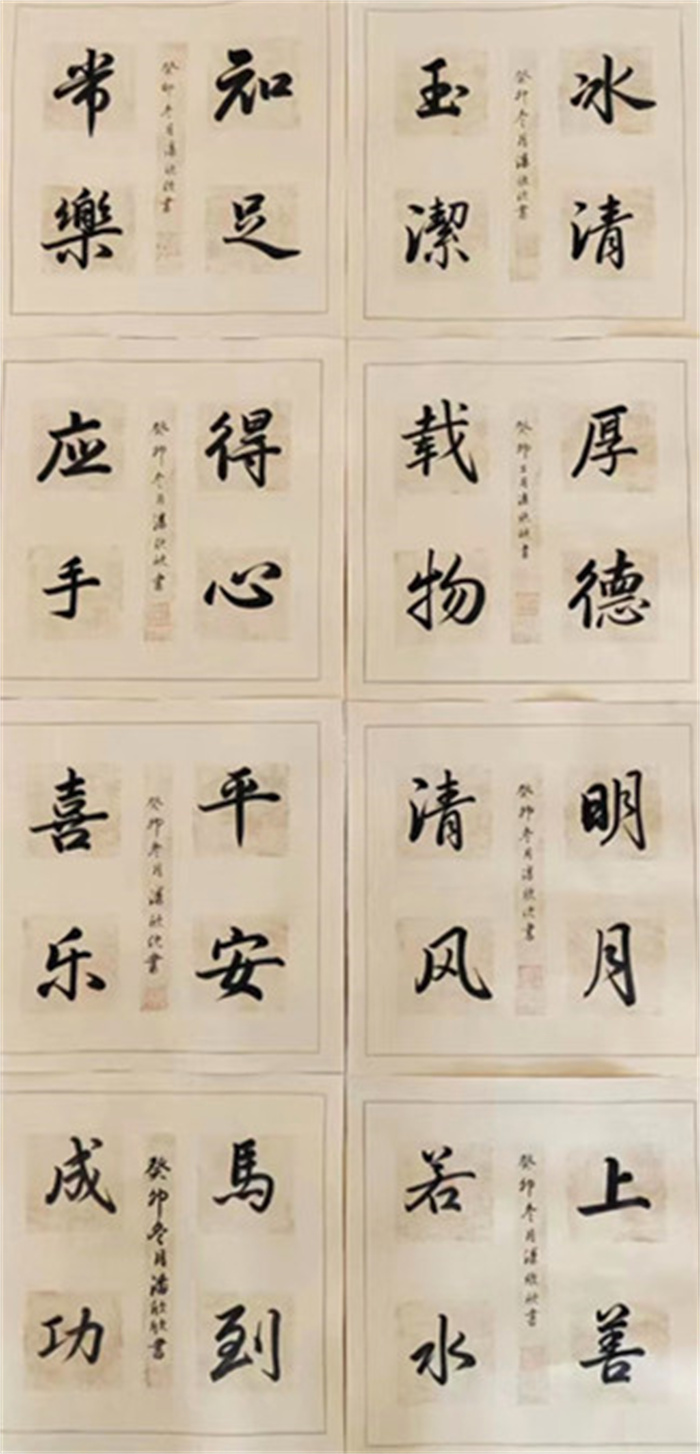 知足
常樂
癸卯冬月潘欣欣書
冰清
玉潔
癸卯冬月潘欣欣書
得心
应手
癸卯冬月潘欣欣書
厚德
载物
癸卯冬月潘欣欣書
平安
喜乐
癸卯冬月潘欣欣書
明月
清风
癸卯冬月潘欣欣書
馬到
成功
癸卯冬月潘欣欣書
上善
若水
癸卯冬月潘欣欣書